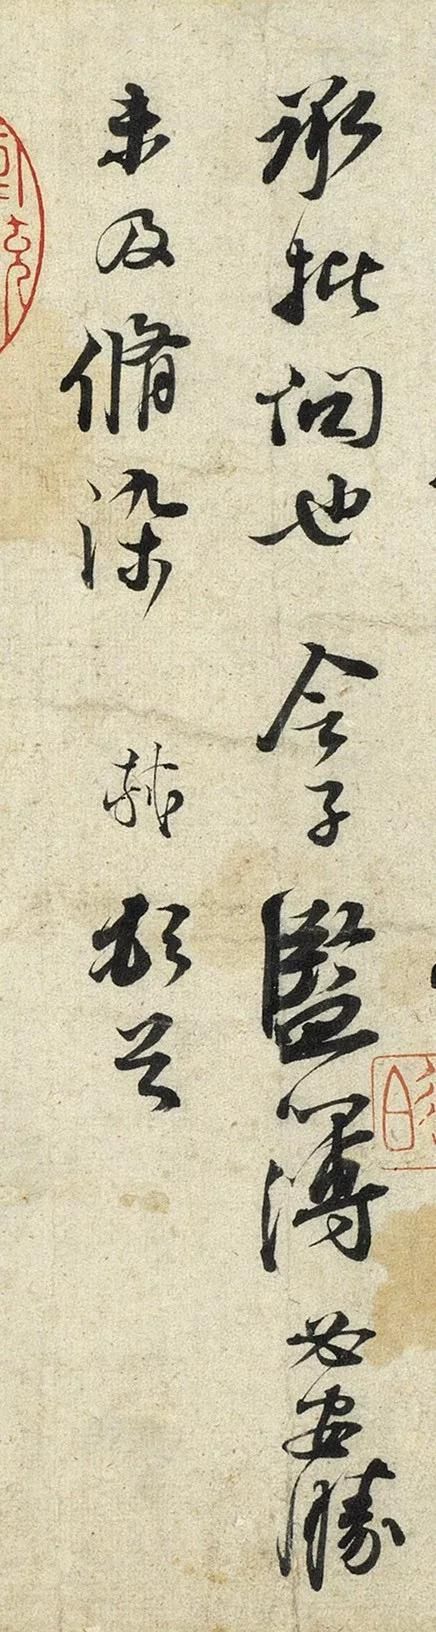 承批問也 令子監簿必安勝
未及脩染 軾頓首